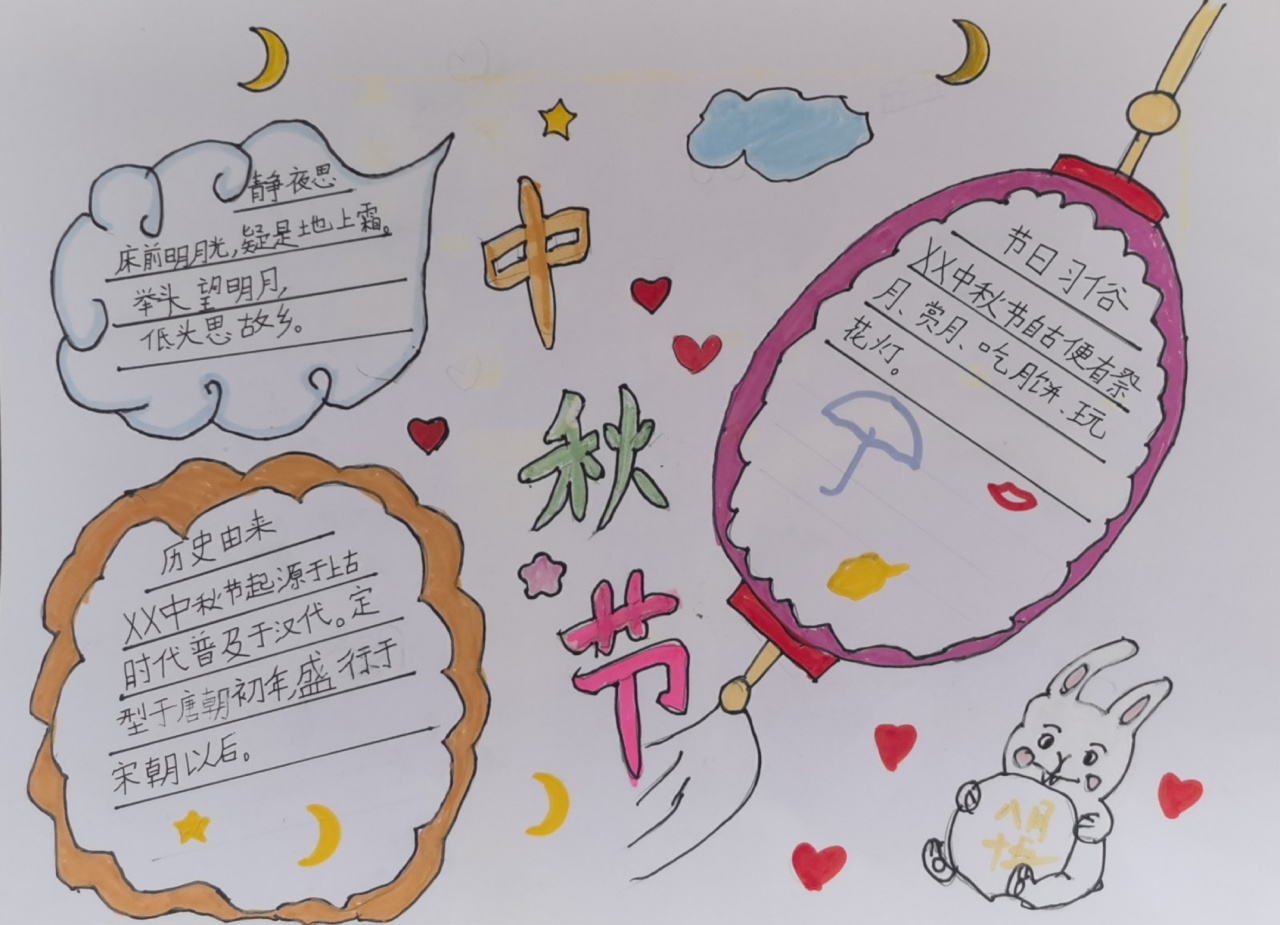 静夜思
床前明月光,疑是地上霜。
举头望明月,
低头思故乡。
中
秋
节
节日习俗
XX中秋节自古便有祭
月、赏月、吃月饼、玩
花灯。
历史由来
XX中秋节起源于上古
时代普及于汉代。定
型于唐朝初年,盛行于
宋朝以后。
八月
十五